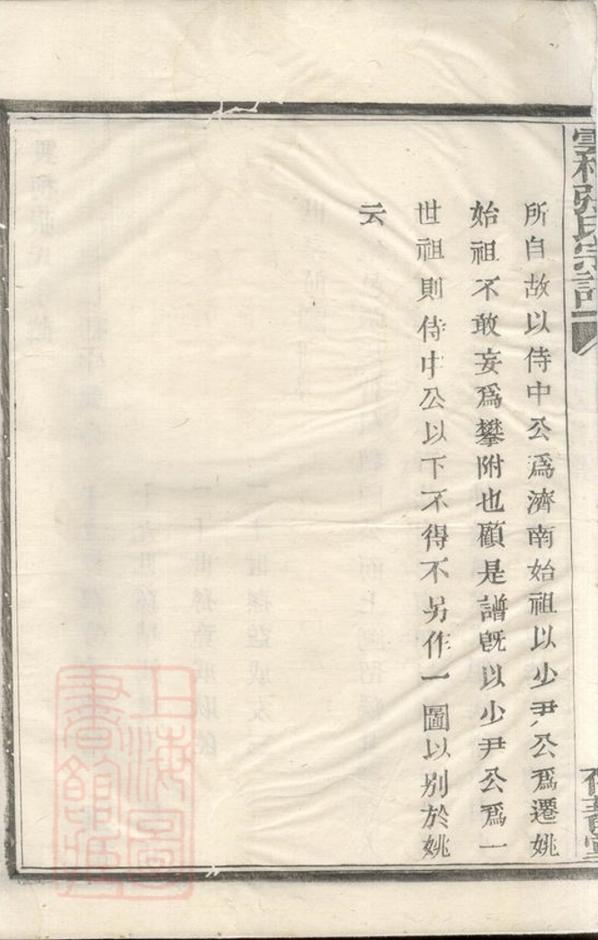 所自故以侍中公爲濟南始祖以少尹公爲遷姚
始祖不敢妄爲攀附也顧是譜旣以少尹公爲一
世祖則侍中公以下不得不另作一圖以別於姚
云
張氏宗譜
上海圖書館藏